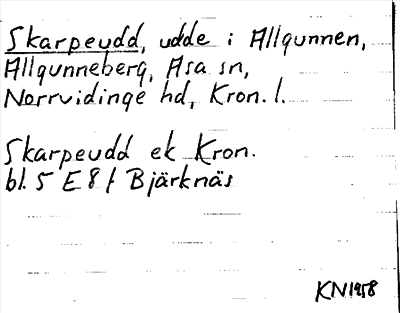 Skarpeudd, udde i Allgunnen,
Allgunneberg, Asa sn,
Norrvidinge hd, Kron. l.
Skarpeudd ek Kron.
bl. 5 E 8 f Bjärknäs
KN 1958